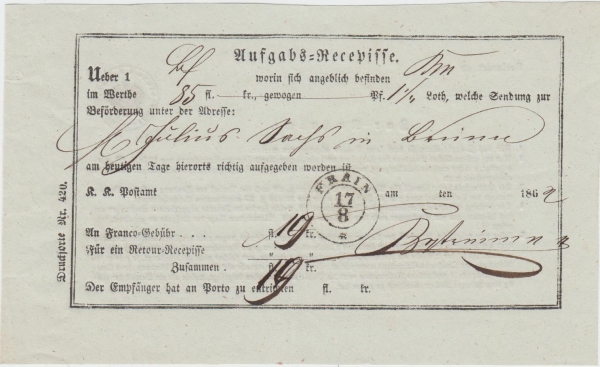 Aufgabs-Recepisse.
Ueber 1 Bf worin sich angeblich befinden
im Werthe 85 fl. kr., gewogen Pf. Loth, welche Sendung zur
Beförderung unter der Adresse:
Julius Sachs in Brünn
am heutigen Tage hierorts richtig aufgegeben worden ist
K. K. Postamt am ten 1862
FRAIN
17
8
An Franco-Gebühr . . . fl. 19 kr.
Für ein Retour-Recepisse " "
Zusammen . fl. 19 kr.
Der Empfänger hat an Porto zu entrichten fl. kr.
Drucksorte Nr. 420.